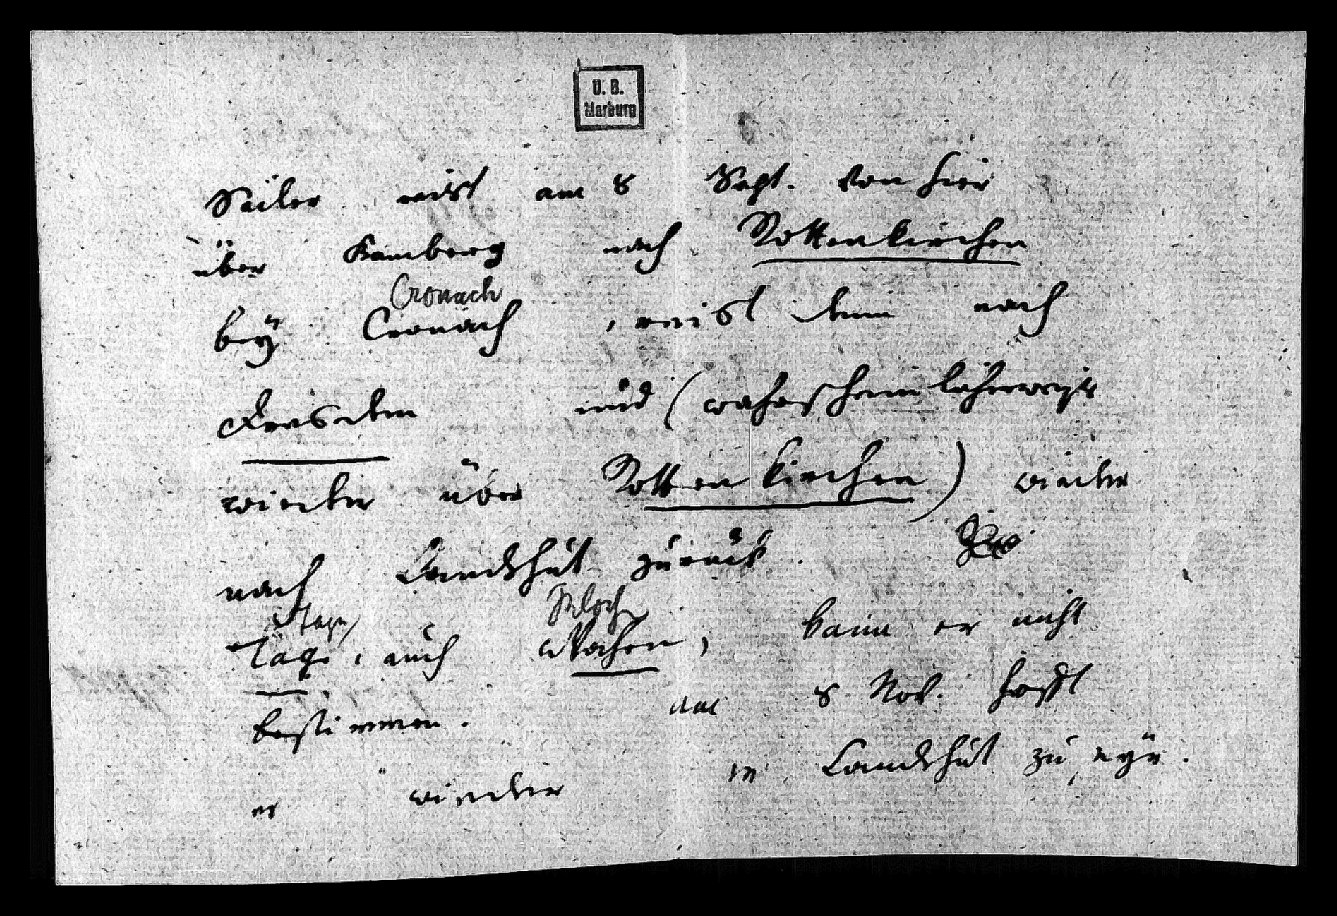 U. B.
Marburg
Sailer reist am 8 Sept. von hier
über Bamberg nach Rottenkirchen
Cronach
bey Cronach, reist dann nach
Dresden und (wahrscheinlicherweise
wieder über Rottenkirchen) wieder
nach Landshut zurück.
Tage
Tage, auch Wochen, kann er nicht
bestimmen. am 8 Nov. hofft
er wieder in Landshut zu seyn.